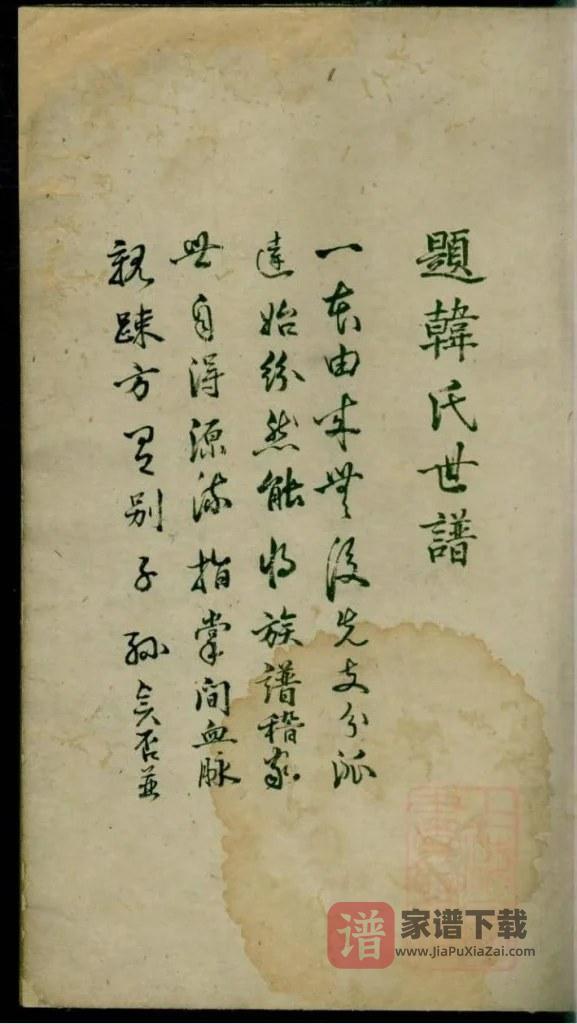 題韓氏世譜
一本由來無後先支分派
遠始紛然能將族譜稽家
世自得源流指掌間血脉
親疎方有別子孫賢否並
谱 家谱下载
www.JiaPuXiaZai.com